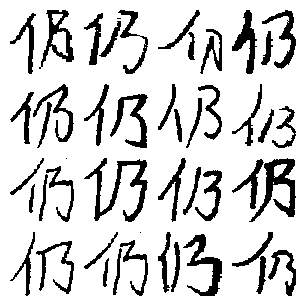 仍仍仍仍
仍仍仍仍
仍仍仍仍
仍仍仍仍